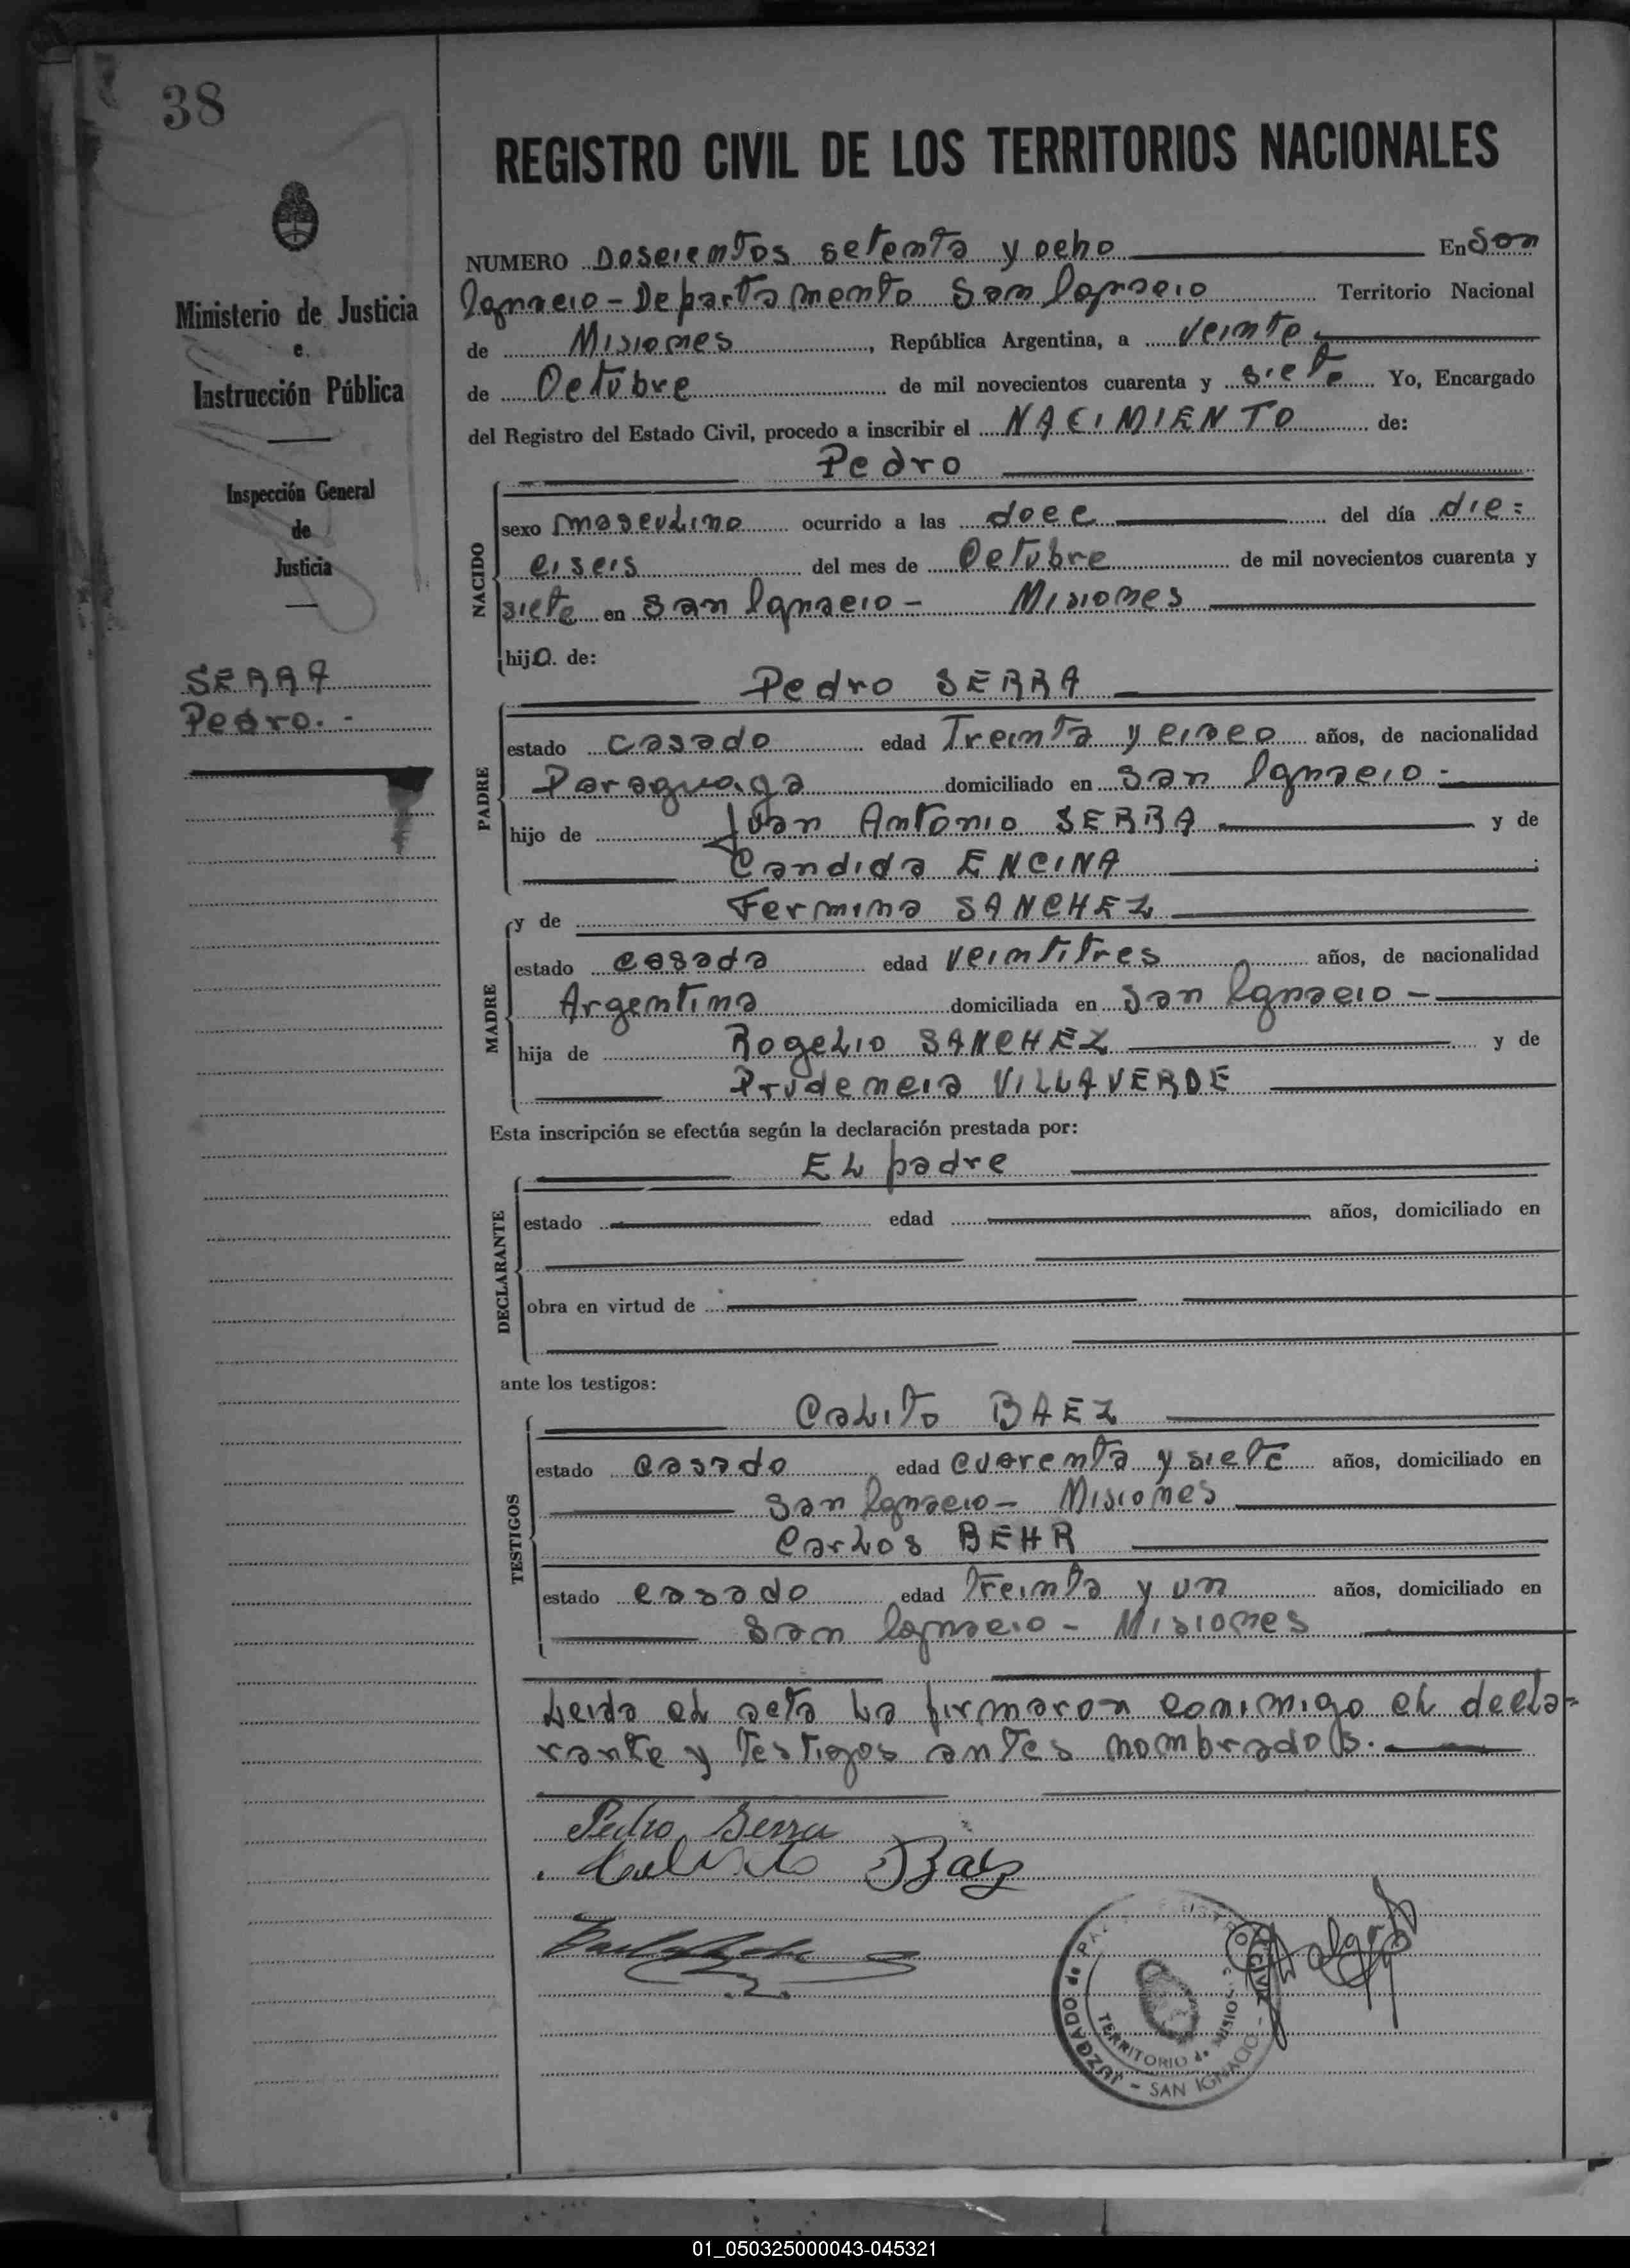 38
REGISTRO CIVIL DE LOS TERRITORIOS NACIONALES
Ministerio de Justicia
e
Instrucción Pública
Inspección General
de
Justicia
SERRA
Pedro.-
NUMERO Doscientos setenta y ocho En San
Ignacio - Departamento San Ignacio Territorio Nacional
de Misiones, República Argentina, a veinte
de Octubre de mil novecientos cuarenta y siete Yo, Encargado
del Registro del Estado Civil, procedo a inscribir el NACIMIENTO de:
Pedro
NACIDO
sexo masculino ocurrido a las doce del día die=
ciseis del mes de Octubre de mil novecientos cuarenta y
siete en San Ignacio - Misiones
hijo. de:
Pedro SERRA
PADRE
estado casado edad Treinta y cinco años, de nacionalidad
Paraguaya domiciliado en San Ignacio -
hijo de Juan Antonio SERRA y de
Candida ENCINA
y de Fermina SANCHEZ
MADRE
estado casada edad veintitres años, de nacionalidad
Argentina domiciliada en San Ignacio -
hija de Rogelio SANCHEZ y de
Prudencia VILLAVERDE
Esta inscripción se efectúa según la declaración prestada por:
El padre
DECLARANTE
estado edad años, domiciliado en
obra en virtud de
ante los testigos:
Calito BAEZ
TESTIGOS
estado casado edad cuarenta y siete años, domiciliado en
San Ignacio - Misiones
Carlos BEHR
estado casado edad treinta y un años, domiciliado en
San Ignacio - Misiones
Leida el acta la firmaron conmigo el decla-
rante y testigos antes nombrados.
Pedro Serra
Calixto Baez
JUZGADO de PAZ REGISTRO CIVIL - SAN IGNACIO -
TERRITORIO de MISIONES
01_050325000043-045321